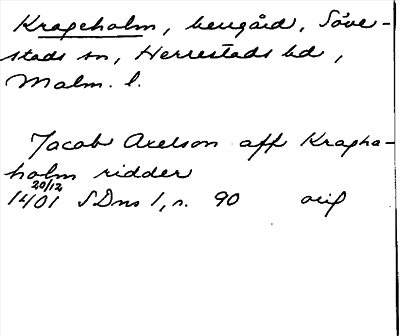 Krageholm, herrgård, Söve-
stads sn, Herrestads hd,
Malm. l.
Jacob Axelson aff Kragha-
holm ridder
20/12
1401 SDns 1, s. 90 orig